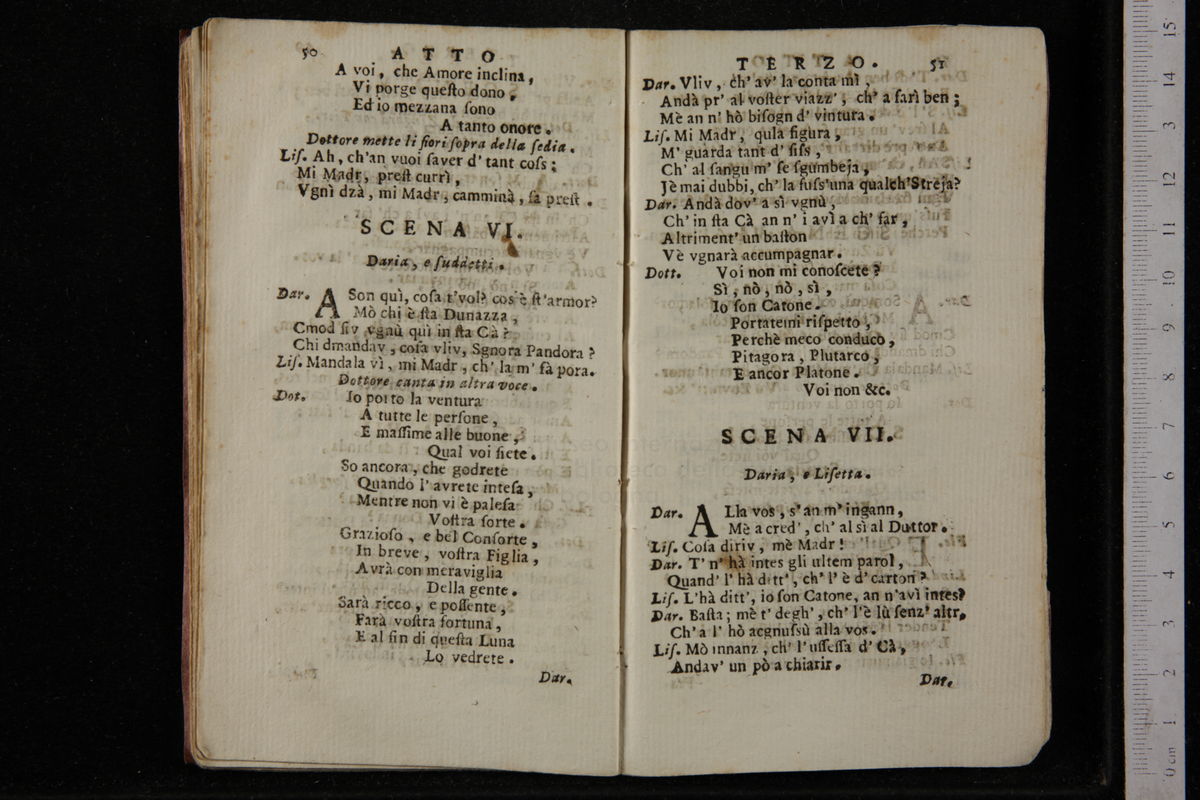 50 ATTO
A voi, che Amore inclina,
Vi porge queſto dono,
Ed io mezzana ſono
A tanto onore.
Dottore mette li fiori ſopra della ſedia.
Liſ. Ah, ch'an vuoi ſaver d' tant coſs;
Mi Madr, preſt currì,
Vgnì dzà, mi Madr, camminà, ſa preſt.
SCENA VI.
Daria, e ſuddetti.
Dar. A Son quì, coſa t'vol? cos'è ſt'armor?
Mò chi è ſta Dunazza,
Cmod ſiv vgnù quì in ſta Cà?
Chi dmandav, coſa vliv, Sgnora Pandora?
Liſ. Mandala vì, mi Madr, ch' la m' fà pora.
Dottore canta in altra voce.
Dot. Io porto la ventura
A tutte le perſone,
E maſſime alle buone,
Qual voi ſiete.
So ancora, che godrete
Quando l' avrete inteſa,
Mentre non vi è paleſa
Voſtra ſorte.
Grazioſo, e bel Conſorte,
In breve, voſtra Figlia,
Avrà con meraviglia
Della gente.
Sarà ricco, e poſſente,
Farà voſtra fortuna,
E al fin di queſta Luna
Lo vedrete.
Dar.
TERZO. 51
Dar. Vliv, ch' av' la conta mì,
Andà pr' al voſter viazz', ch' a farì ben;
Mè an n' hò biſogn d' vintura.
Liſ. Mi Madr, qula figura,
M' guarda tant d' fiſs,
Ch' al ſangu m' ſe ſgumbeja,
Jè mai dubbi, ch' la fuſs'una qualch'Streja?
Dar. Andà dov' a sì vgnù,
Ch' in ſta Cà an n' i avì a ch' far,
Altriment' un baſton
Vè vgnarà accumpagnar.
Dott. Voi non mi conoſcete?
Sì, nò, nò, sì,
Io ſon Catone.
Portatemi riſpetto,
Perchè meco conduco,
Pitagora, Plutarco,
E ancor Platone.
Voi non &c.
SCENA VII.
Daria, e Liſetta.
Dar. ALla vos, s'an m' ingann,
Mè a cred', ch' al sì al Duttor.
Liſ. Coſa diriv, mè Madr!
Dar. T' n' hà intes gli ultem parol,
Quand' l' hà ditt', ch' l' è d' carton?
Liſ. L'hà ditt', io ſon Catone, an n'avì intes?
Dar. Baſta; mè t' degh', ch' l'è lù ſenz' altr,
Ch' a l' hò acgnuſsù alla vos.
Liſ. Mò innanz, ch' l'uſſeſſa d' Cà,
Andav' un pò a chiarir.
Dar.